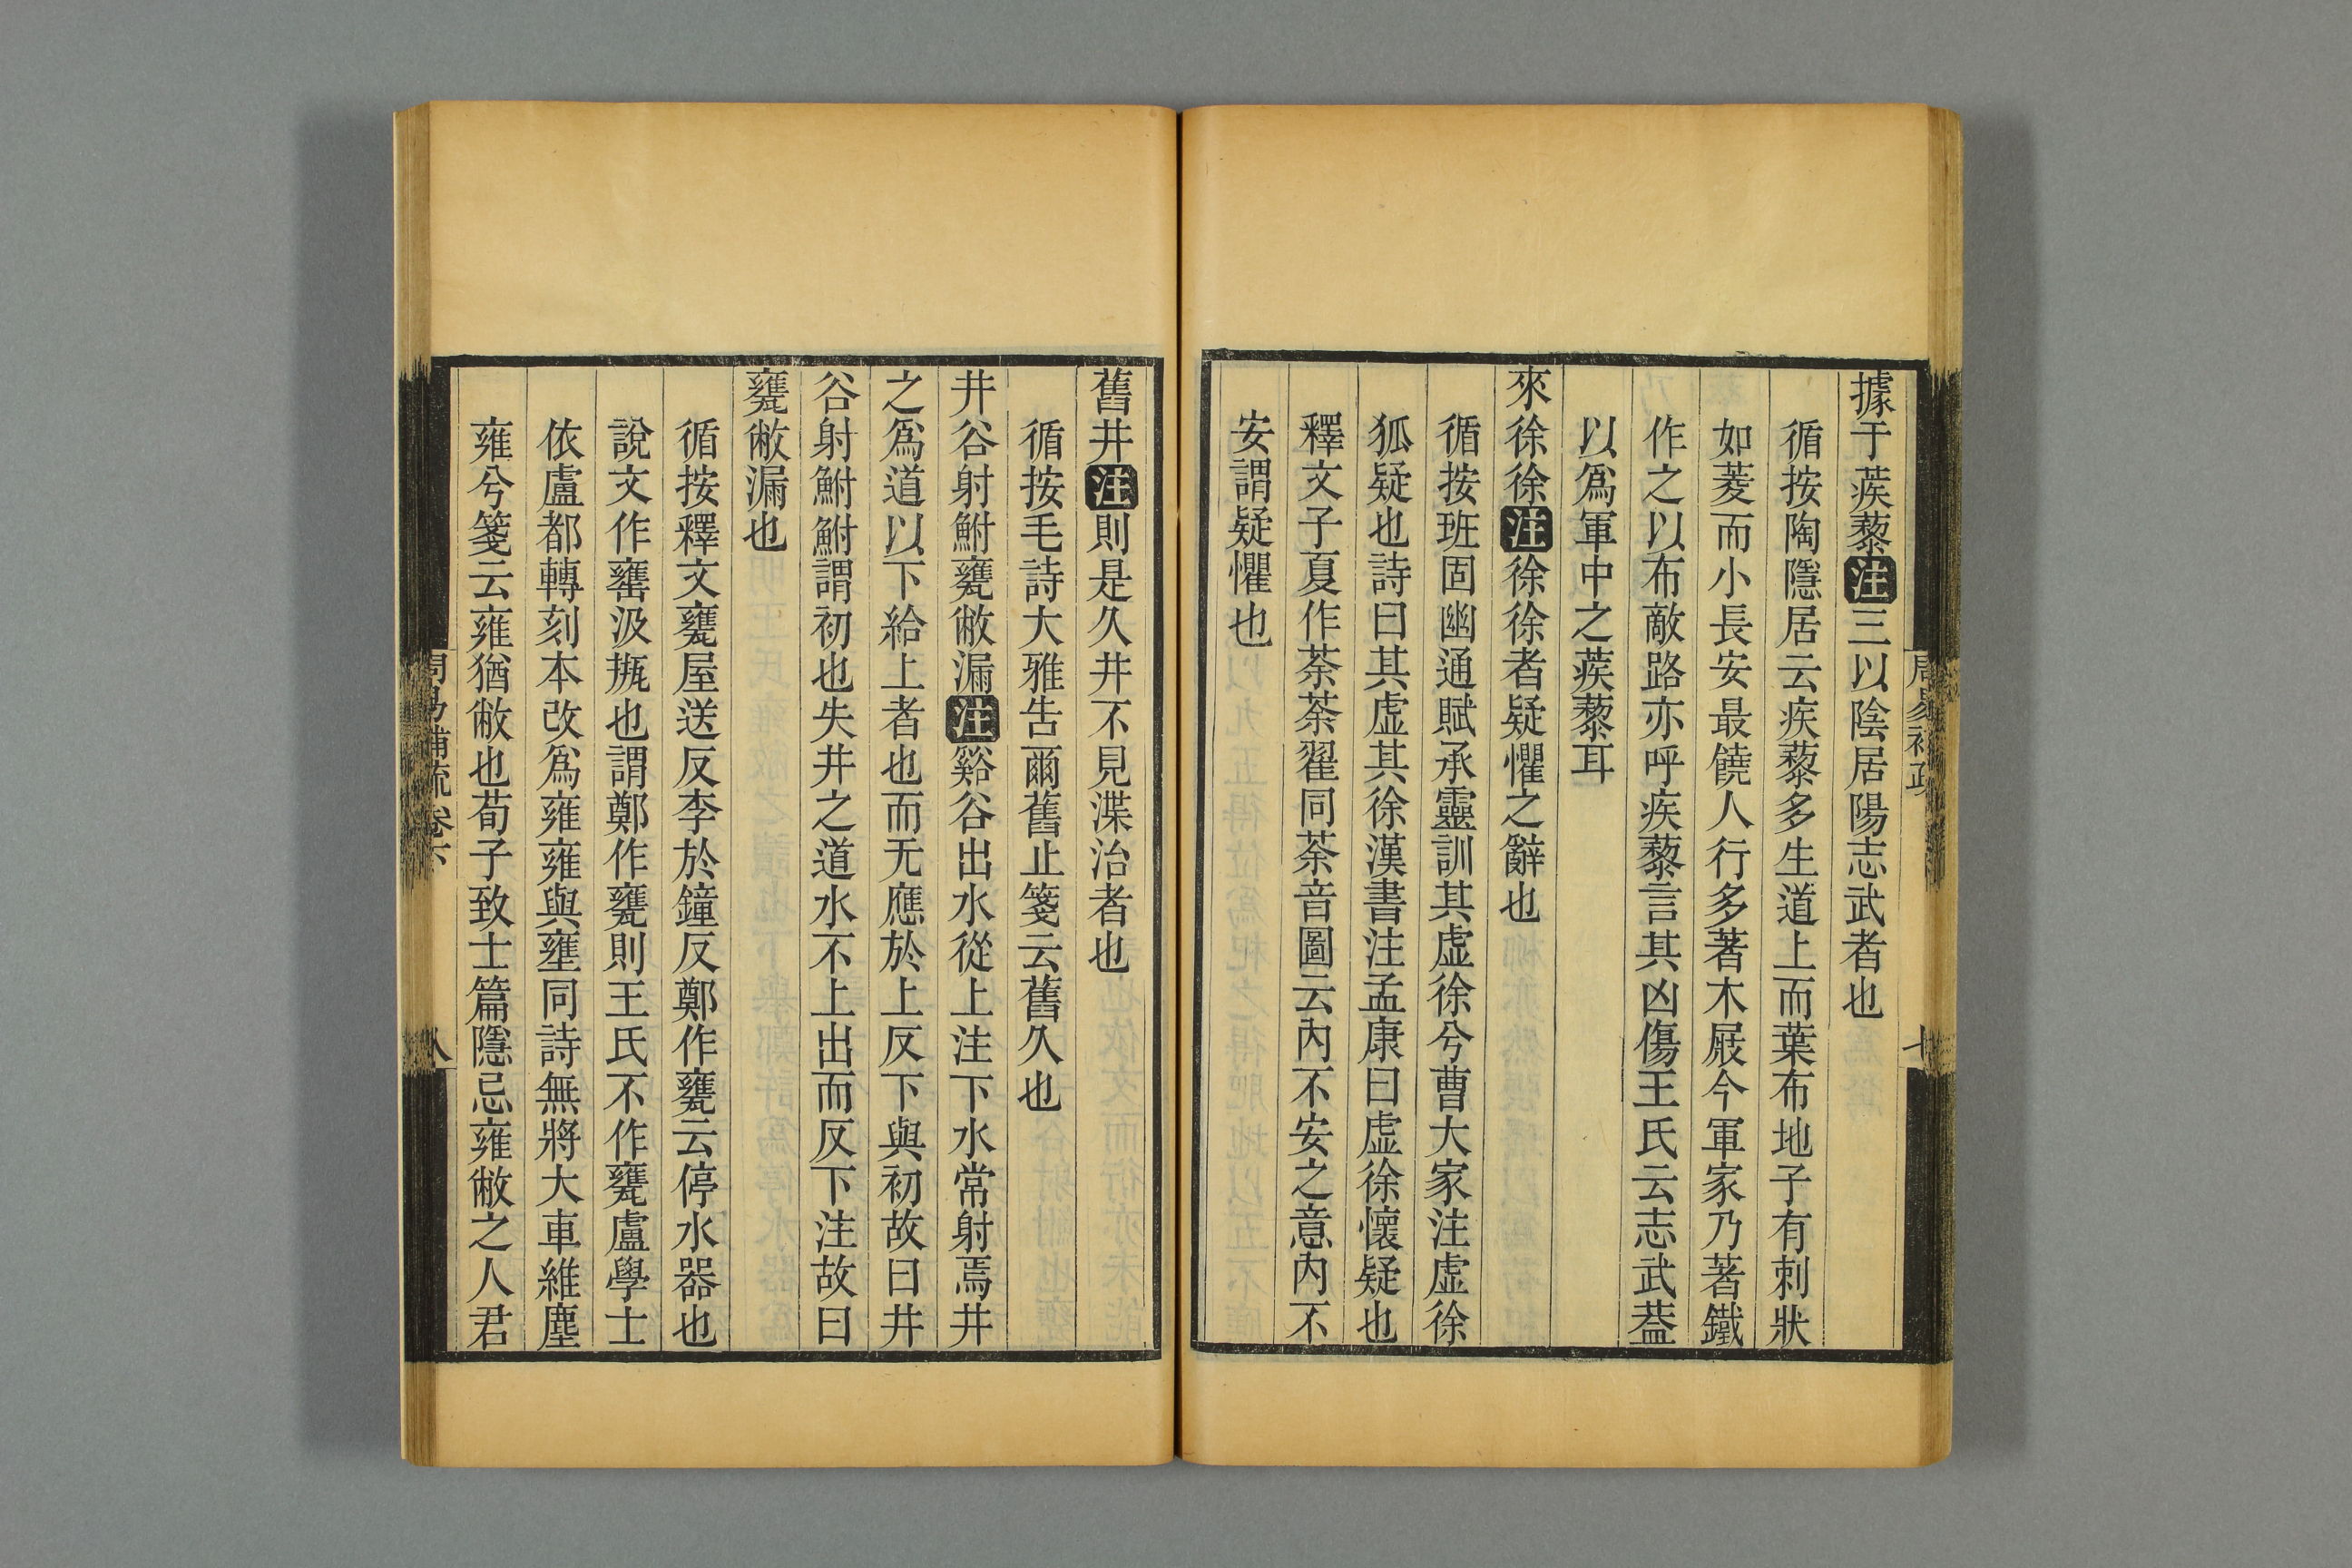 據于蒺藜注三以陰居陽志武者也
循按陶隱居云疾藜多生道上而葉布地子有刺狀
如菱而小長安最饒人行多著木屐今軍家乃著鐵
作之以布敵路亦呼疾藜言其凶傷王氏云志武葢
以爲軍中之蒺藜耳
來徐徐注徐徐者疑懼之辭也
循按班固幽通賦承靈訓其虛徐兮曹大家注虛徐
狐疑也詩曰其虛其徐漢書注孟康曰虛徐懷疑也
釋文子夏作荼荼翟同荼音圖云內不安之意內不
安謂疑懼也
舊井注則是久井不見渫治者也
循按毛詩大雅告爾舊止箋云舊久也
井谷射鮒甕敝漏注谿谷出水從上注下水常射焉井
之爲道以下給上者也而无應於上反下與初故曰井
谷射鮒鮒謂初也失井之道水不上出而反下注故曰
甕敝漏也
循按釋文甕屋送反李於鐘反鄭作甕云停水器也
說文作罋汲缾也謂鄭作甕則王氏不作甕盧學士
依盧都轉刻本改爲雍雍與壅同詩無將大車維塵
雍兮箋云雍猶敝也荀子致士篇隱忌雍敝之人君
周易補疏卷六
八